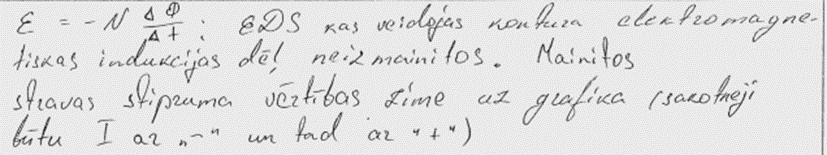 ε = - N ΔΦ/Δt ; EDS kas veidojas kontura elektromagne-
tiskas indukcijas dēļ neizmainitos. Mainitos
stravas stipruma vērtības zīme uz grafika (sakotnēji
būtu I ar „-“ un tad ar "+")